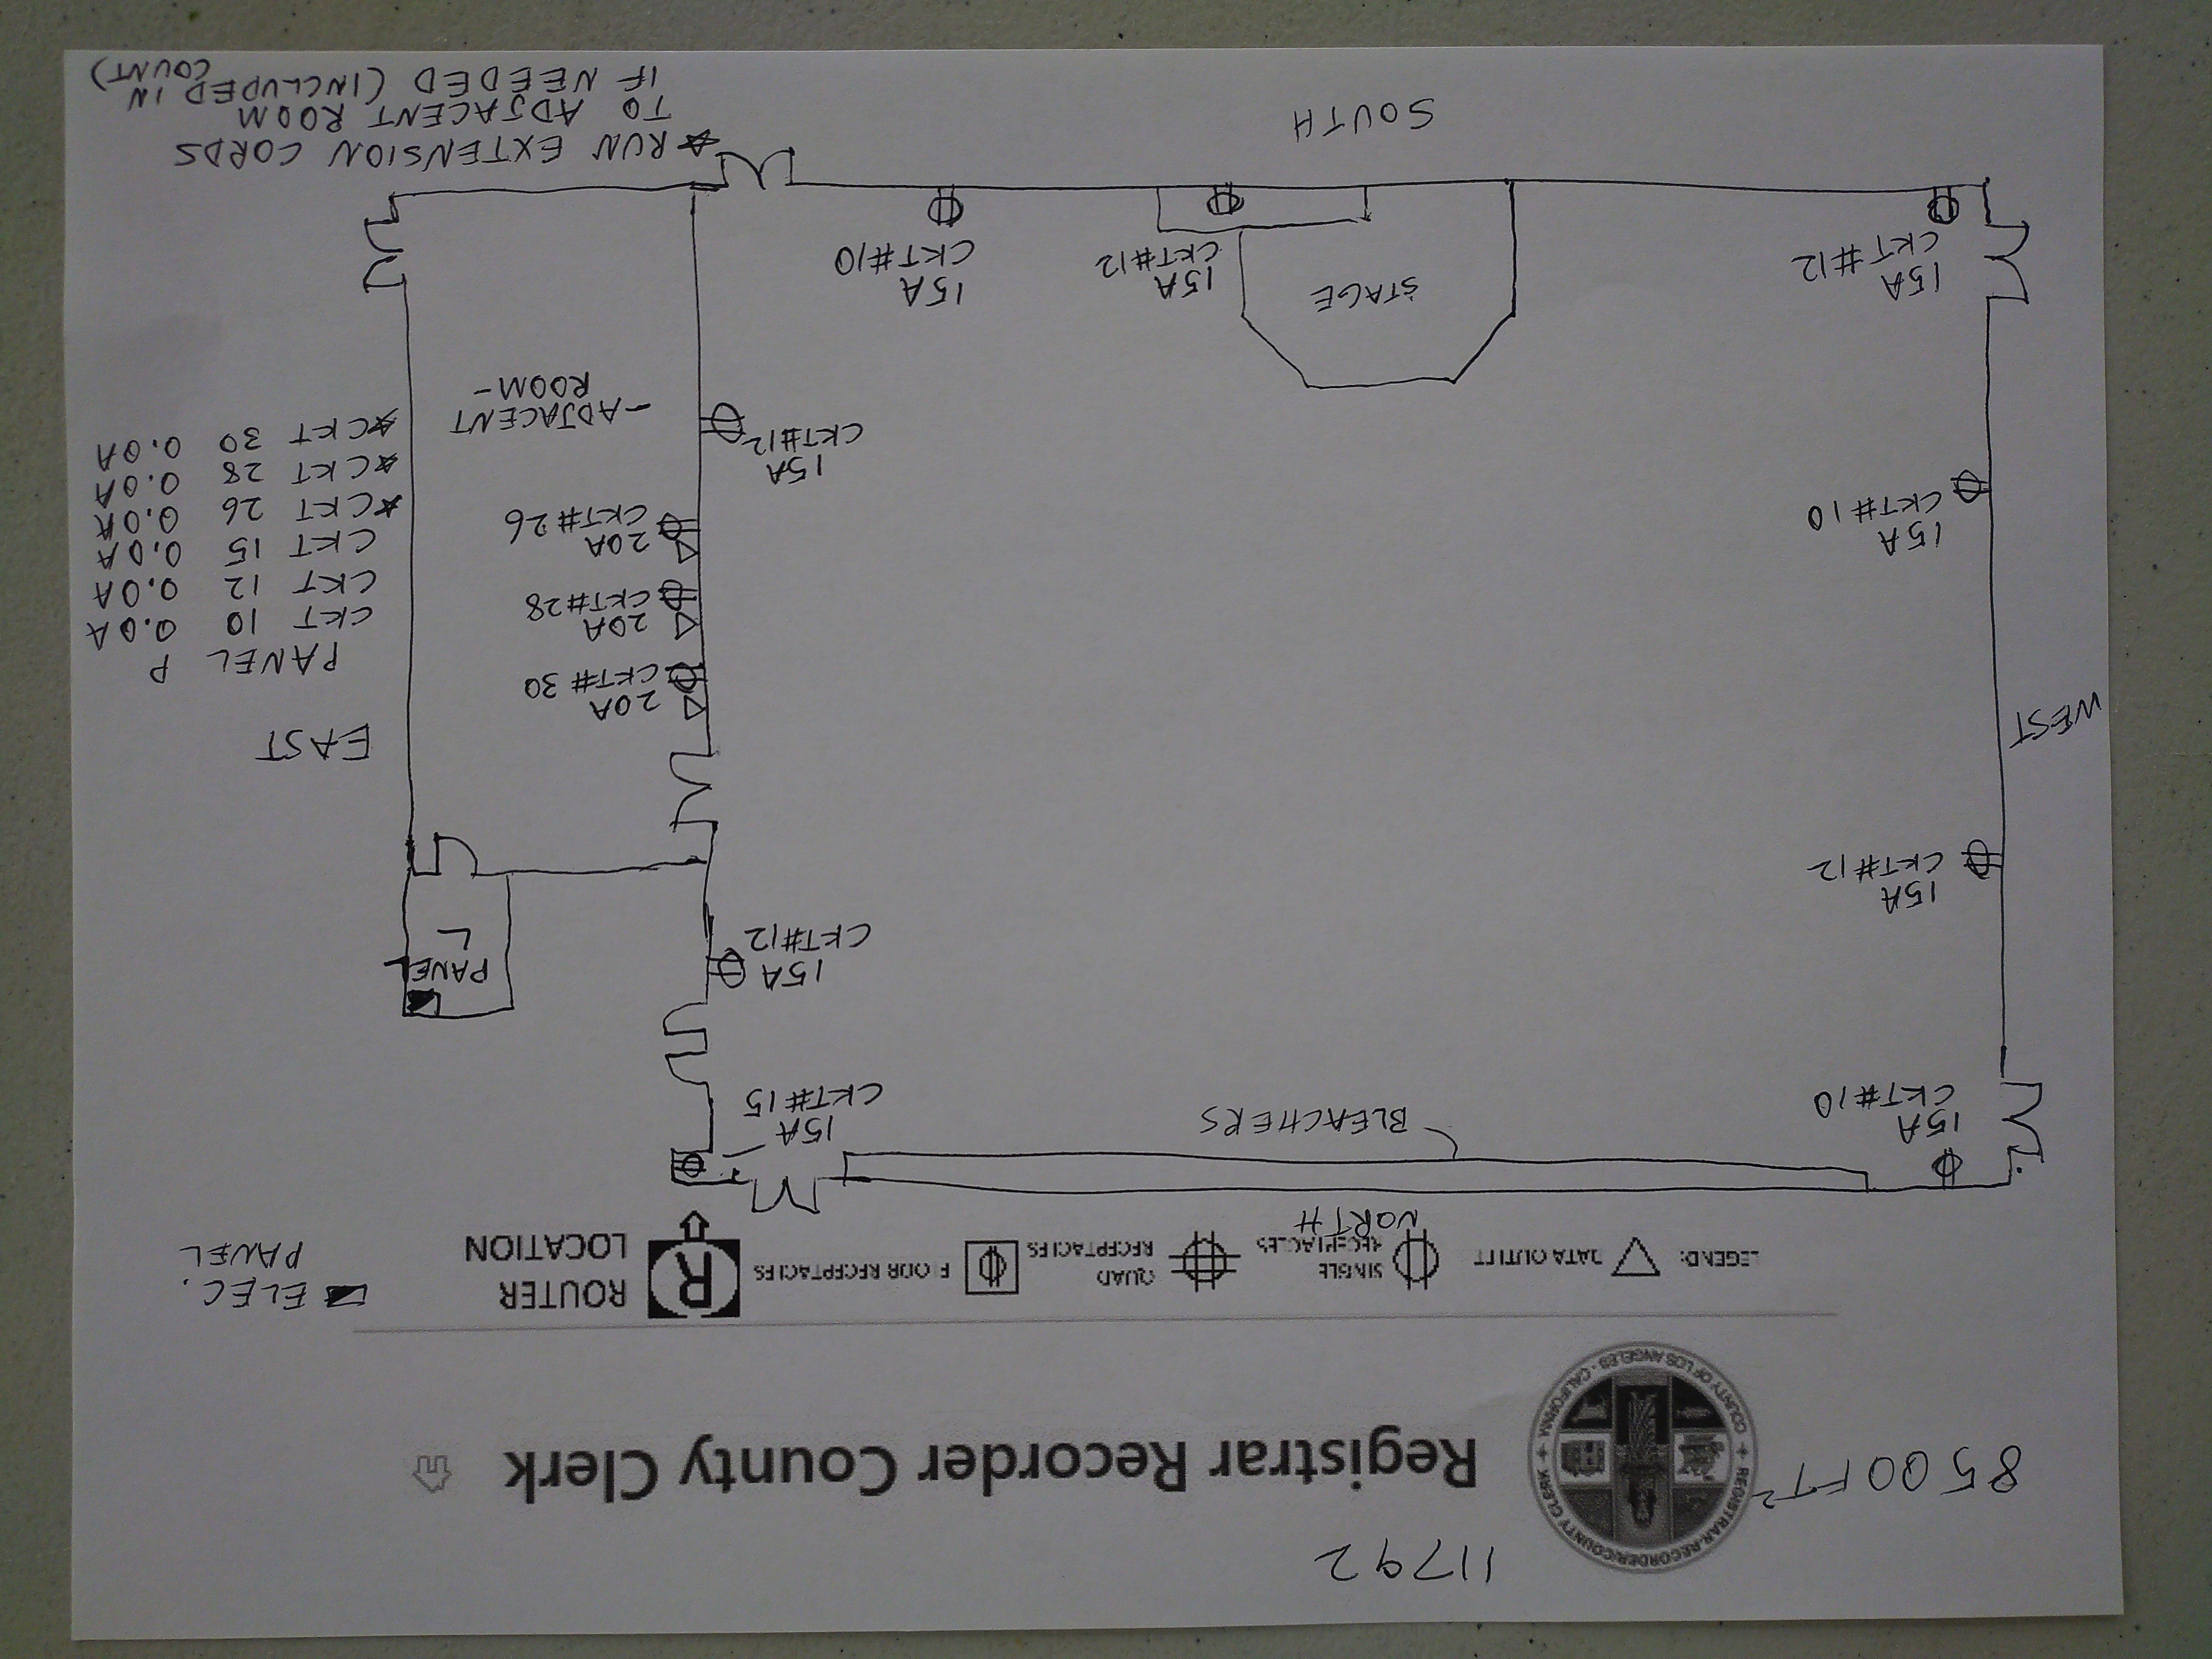 11792
8500 FT²
REGISTRAR-RECORDER/COUNTY CLERK
COUNTY OF LOS ANGELES - CALIFORNIA
Registrar Recorder County Clerk
LEGEND:
DATA OUTLET
SINGLE
RECEPTACLES
QUAD
RECEPTACLES
FLOOR RECEPTACLES
R
ROUTER
LOCATION
ELEC.
PANEL
NORTH
BLEACHERS
15A
CKT#10
15A
CKT#15
15A
CKT#12
15A
CKT#12
PANEL
L
WEST
EAST
20A
CKT#30
20A
CKT#28
20A
CKT#26
PANEL P
CKT 10 0.0A
CKT 12 0.0A
CKT 15 0.0A
☆CKT 26 0.0A
☆CKT 28 0.0A
☆CKT 30 0.0A
15A
CKT#10
15A
CKT#12
-ADJACENT
ROOM-
15A
CKT#12
STAGE
15A
CKT#12
15A
CKT#10
SOUTH
☆RUN EXTENSION CORDS
TO ADJACENT ROOM
IF NEEDED (INCLUDED IN
COUNT)